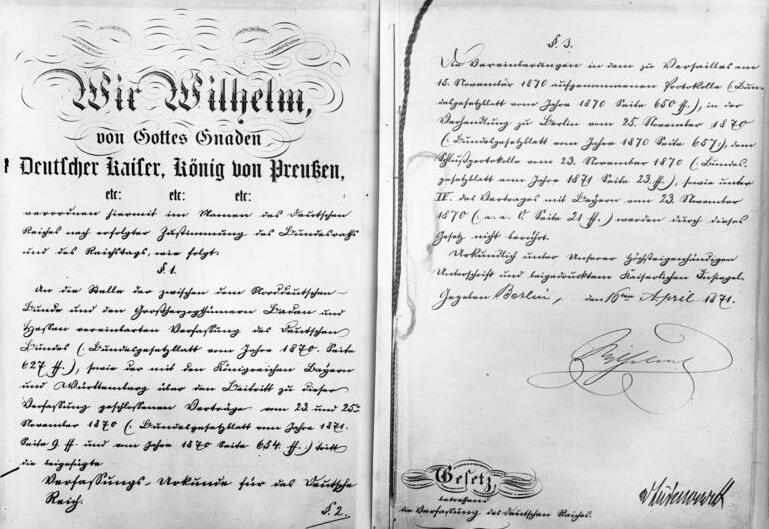 Wir Wilhelm,
von Gottes Gnaden
Deutscher Kaiser, König von Preußen,
etc: etc: etc:
verordnen hiermit im Namen des Deutschen
Reichs nach erfolgter Zustimmung des Bundesraths
und des Reichstags, wie folgt:
§ 1.
An die Stelle der zwischen dem Norddeutschen
Bunde und den Großherzogthümern Baden und
Hessen vereinbarten Verfassung des Deutschen
Bundes (: Bundesgesetzblatt vom Jahre 1870. Seite
627 ff.), sowie der mit den Königreichen Bayern
und Württemberg über den Beitritt zu dieser
Verfassung geschlossenen Verträge vom 23. und 25ten
November 1870 (: Bundesgesetzblatt vom Jahre 1871.
Seite 9. ff. und vom Jahre 1870 Seite 654. ff.:) tritt
die beigefügte
Verfassungs-Urkunde für das Deutsche
Reich.
§. 2.
§. 3.
Die Vereinbarungen in dem zu Versailles am
15. November 1870 aufgenommenen Protokolle (: Bun-
desgesetzblatt vom Jahre 1870 Seite 650 ff.), in der
Verhandlung zu Berlin vom 25. November 1870
(: Bundesgesetzblatt vom Jahre 1870 Seite 657:), dem
Schlußprotokolle vom 23. November 1870 (: Bundes-
gesetzblatt vom Jahre 1871 Seite 23 ff.), sowie unter
IV. des Vertrages mit Bayern vom 23. November
1870 (: a. a. O. Seite 21 ff.) werden durch dieses
Gesetz nicht berührt.
Urkundlich unter Unserer Höchsteigenhändigen
Unterschrift und beigedrucktem Kaiserlichen Insiegel.
Gegeben Berlin, den 16ten April 1871.
Wilhelm
Gesetz,
betreffend
die Verfassung des Deutschen Reiches.